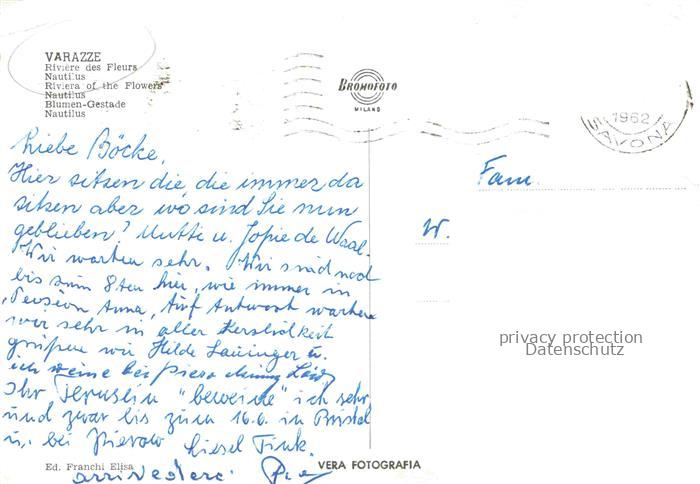 VARAZZE
Rivière des Fleurs
Nautilus
Riviera of the Flowers
Nautilus
Blumen-Gestade
Nautilus
BROMOFOTO
MILANO
1962
SAVONA
Liebe Böcke,
Hier sitzen die die immer da
sitzen aber wo sind Sie nun
geblieben? Mutti u. Jopie de Waal.
Wir warten sehr. Wir sind noch
bis zum 8ten hier, wie immer in
Pension Anna, Auf Antwort warten
wir sehr in aller Herzlichkeit
grüßen wir Hilde u.
ich weine bei
Ihr "beweine" ich sehr
und zwar bis zum 16.6. in Bristol
u. bei Liesel Fink.
arrivederci
Fam.
W.
privacy protection
Datenschutz
Ed. Franchi Elisa
VERA FOTOGRAFIA